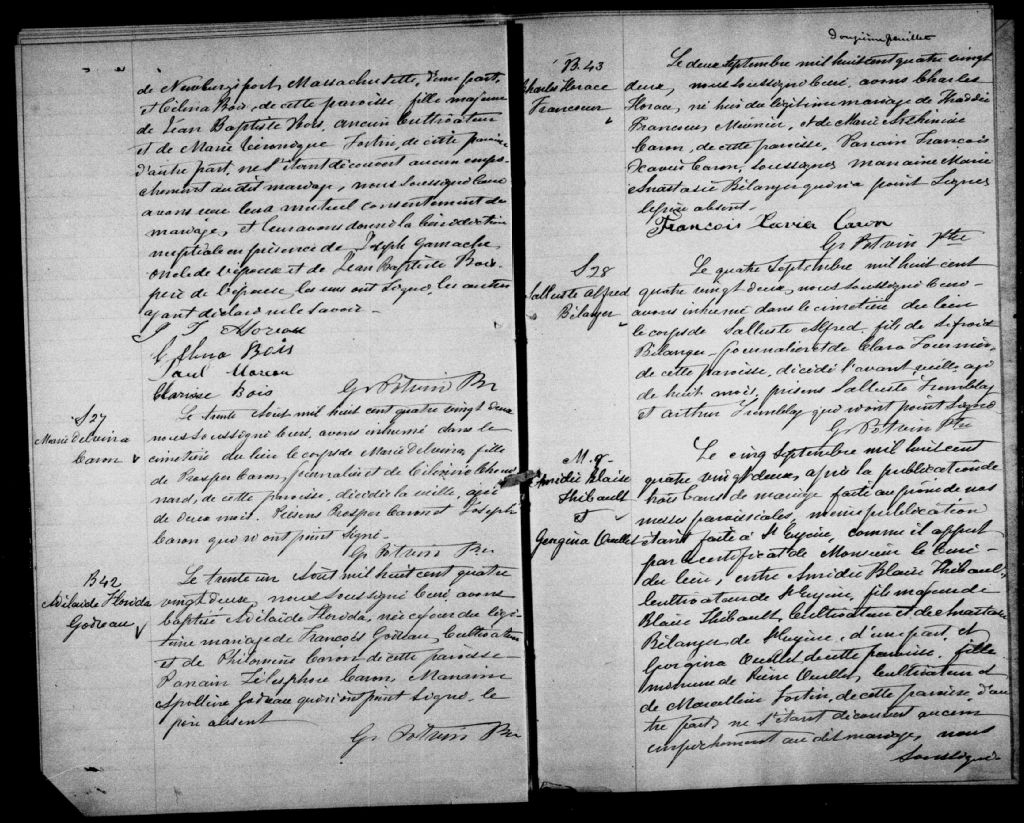 de Newburyport, Massachusetts, d'une part,
et Célina Bois, de cette paroisse, fille majeure
de Jean Baptiste Bois, ancien Cultivateur
et de Marie Véronique Fortin, de cette paroisse
d'autre part, ne s'étant découvert aucun empê-
chement au dit mariage, nous soussigné Curé
avons reçu leur mutuel consentement de
mariage, et leur avons donné la bénédiction
nuptiale en présence de Joseph Gamache
oncle de l'époux et de Jean Baptiste Bois
père de l'épouse, les uns ont signé, les autres
ayant déclaré ne le savoir.
Bois
Paul
Clarisse Bois
G. Potvin Ptr
S27
Marie Delvina
Caron
Le trente Août mil huit cent quatre vingt deux
nous soussigné Curé, avons inhumé dans le
cimetière du lieu le corps de Marie Delvina, fille
de Prosper Caron, journalier et de Choui
nard, de cette paroisse, décédée la veille, agée
de deux mois. Présens Prosper Caron et Joseph
Caron qui n'ont point signé.
G. Potvin Ptr
B42
Adélaïde Florida
Godreau
Le trente un Août mil huit cent quatre
vingt deux, nous soussigné Curé, avons
baptisé Adélaïde Florida, née ce jour du légi-
time mariage de François Godreau, Cultivateur
et de Philomène Caron, de cette paroisse
Parrain Télesphore Caron, Marraine
Apolline Godreau qui n'ont point signé, le
père absent
G. Potvin Ptr
Douzième feuillet
B.43
Charles Horace
Francœur
Le deux Septembre mil huit cent quatre vingt
deux, nous soussigné Curé, avons Charles
Horace, né hier du légitime mariage de Thaddée
Francœur, Meunier, et de Marie Arthémise
Caron, de cette paroisse. Parrain François
Xavier Caron, soussigné, marraine Marie
Anastasie Bélanger qui n'a point signé
le père absent.
François Xavier Caron
G. Potvin Ptre
S28
Salluste Alfred
Bélanger
Le quatre Septembre mil huit cent
quatre vingt deux, nous soussigné Curé
avons inhumé dans le cimetière du lieu
le corps de Salluste Alfred, fils de Sifroid
Bélanger, journalier et de Clara Fournier,
de cette paroisse, décédé l'avant veille, agé
de huit mois, présens Salluste Tremblay
et Arthur Tremblay qui n'ont point signé
G. Potvin Ptre
M. 9
Amédée Blaise
Thibault
et
Georgina Ouellet
Le cinq Septembre mil huit cent
quatre vingt deux, après la publication de
trois bans de mariage faite au prône de nos
messes paroissiales, même publication
étant faite à St Eugène, comme il appert
par le certificat de Monsieur le Curé
du lieu, entre Amédée Blaise Thibault,
Cultivateur de St Eugène, fils majeur de
Blaise Thibault, Cultivateur et de Anastasie
Bélanger de St Eugène, d'une part, et
Georgina Ouellet de cette paroisse, fille
mineure de Pierre Ouellet, Cultivateur et
de Marcelline Fortin, de cette paroisse d'au
tre part, ne s'étant découvert aucun
empêchement au dit mariage, nous
soussigné